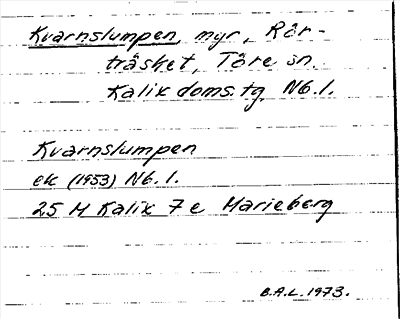 Kvarnslumpen, myr, Rör-
träsket, Töre sn.
Kalix doms. tg. Nb. l.
Kvarnslumpen
ek (1953) Nb. l.
25 M Kalix 7 e Marieberg
B.A.L. 1973.